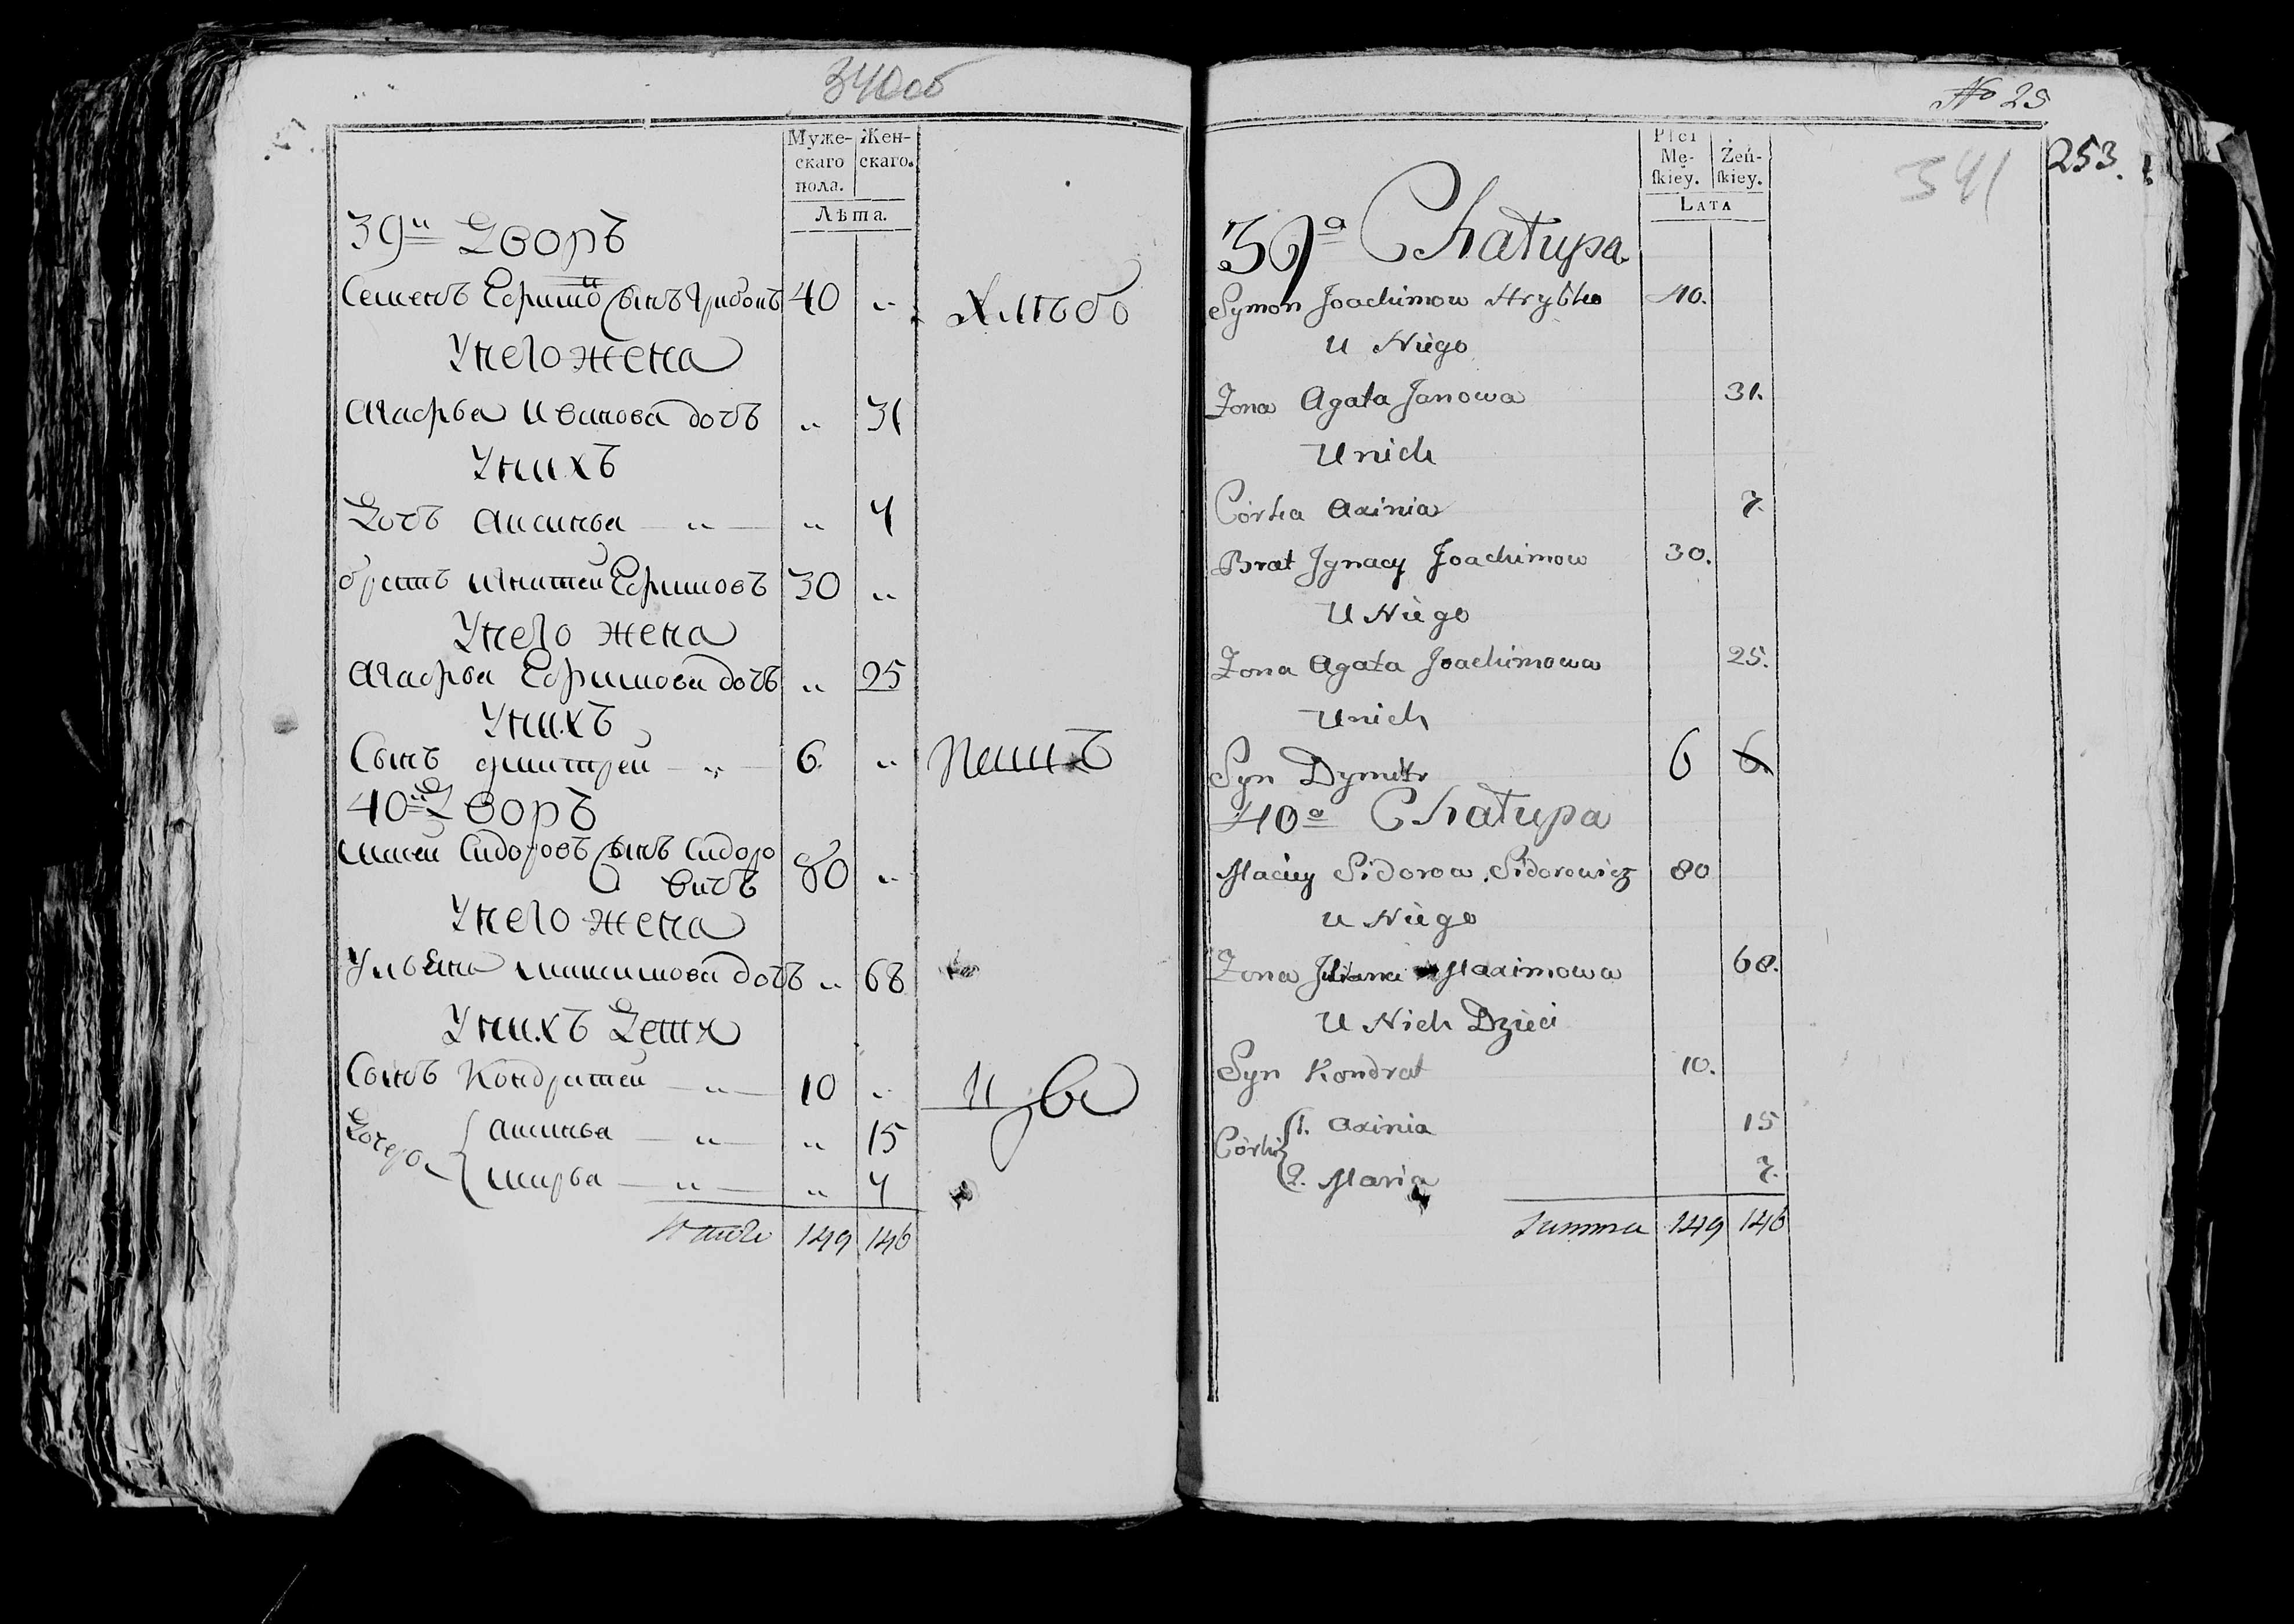 340об
Муже-
скаго
пола.
Жен-
скаго.
Лѣта.
39й Дворъ
Семенъ Ефимо сынъ Грибокъ 40 "
Унего жена
Агафья Иванова дочь " 31
Унихъ
Дочь Аксинья — " — " 7
братъ Игнатей Ефимовъ 30 "
Унего жена
Агафья Ефимова дочь " 25
Унихъ
Сынъ дмитрей — " — 6 "
40й Дворъ
Матей Сидоровъ сынъ Сидоро
вичь 80 "
Унего жена
Ульяна Максимова дочь " 68
Унихъ Дети
Сынъ Кондратей — " — 10 "
Дочери
Аксинья — " — " 15
Марья — " — " 7
Итого 149 146
№ 25
253.
341
Płci
Mę-
ſkiey.
Żeń-
ſkiey.
LATA
39a Chałupa
Symon Joachimow Hrybko 40.
U Niego
Zona Agata Janowa 31.
U nich
Córka Axinia 7.
Brat Jgnacy Joachimow 30.
U Niego
Zona Agata Joachimowa 25.
U nich
Syn Dymitr 6 6.
40a Chałupa
Maciey Sidorow Sidorowicz 80
U Niego
Zona Juliana Maximowa 68.
U Nich Dzieci
Syn Kondrat 10.
Córki
1. Axinia 15
2. Maria 7.
Summa 149 146